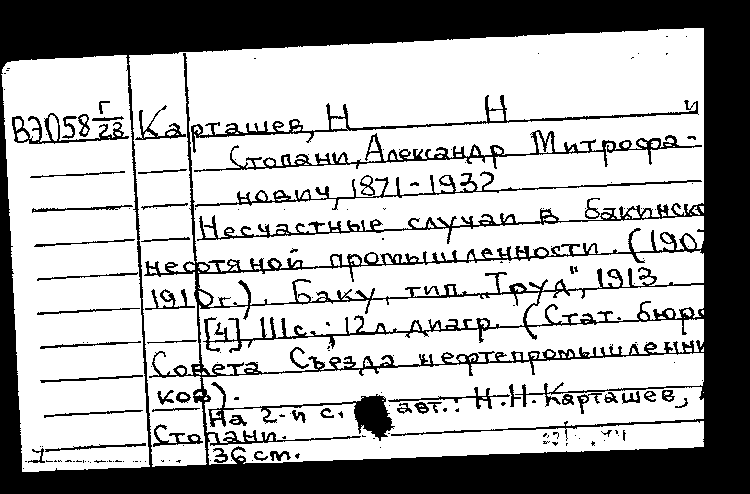 ВЭ058 Г/28 Карташев, Н Н и
Стопани, Александр Митрофа-
нович, 1871-1932
Несчастные случаи в Бакинско
нефтяной промышленности. (1907
1910г.). Баку, тип. „Труд", 1913.
[4], 111с.; 12л. диагр. (Стат. бюро
Совета Съезда нефтепромышленни
ков).
На 2-й с. авт.: Н.Н. Карташев,
Стопани.
36 cm.